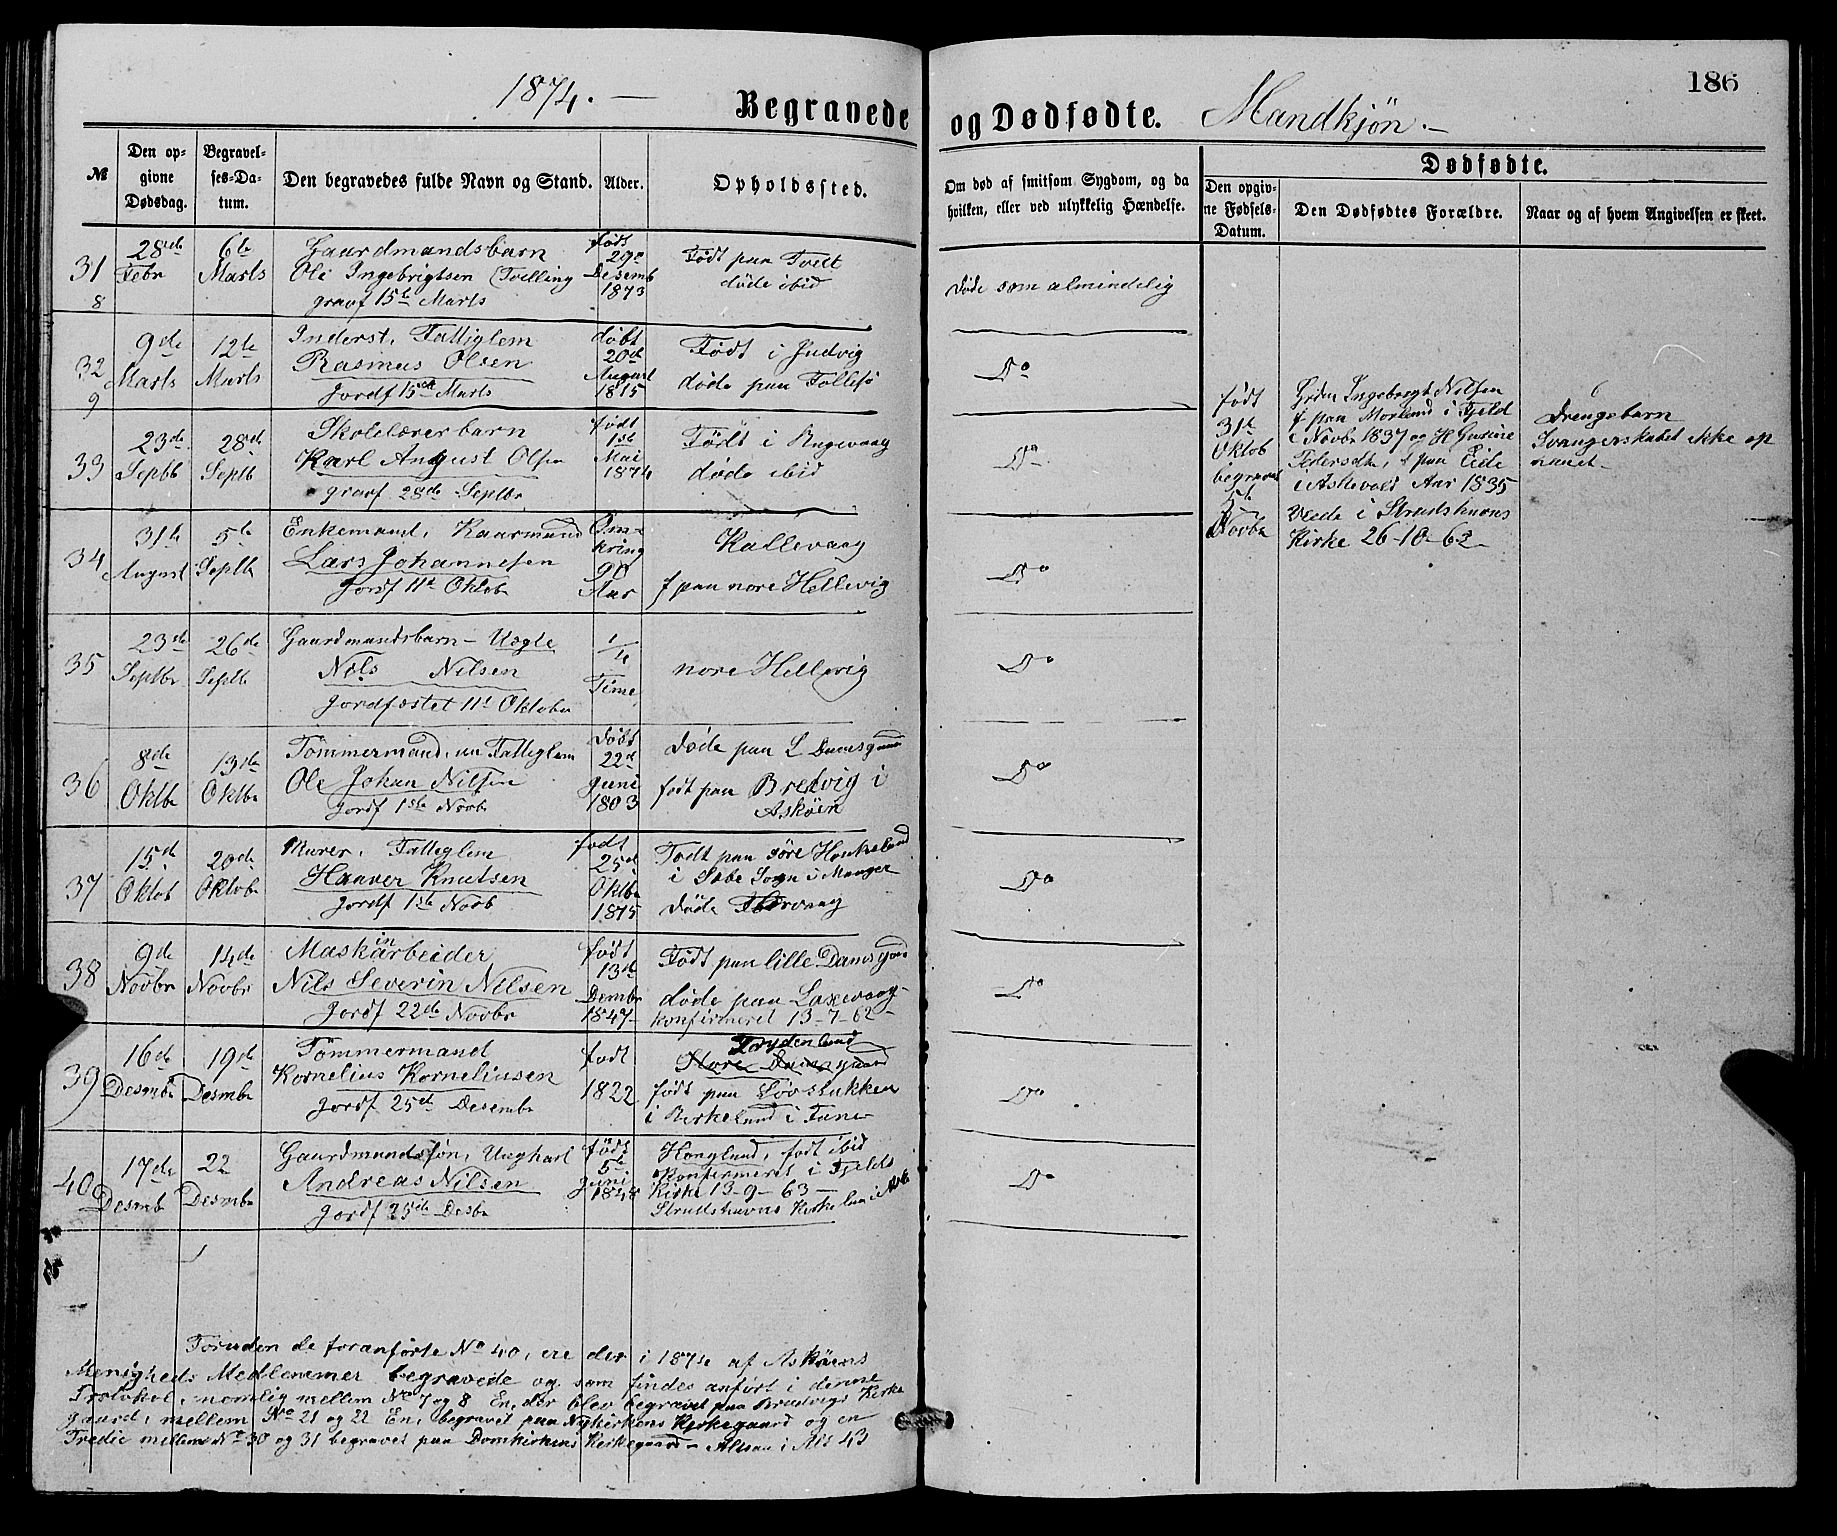 186
1874. —
Begravede og Dødfødte. Mandkjøn. —
№
Den op-
givne
Dødsdag.
Begravel-
ses-Da-
tum.
Den begravedes fulde Navn og Stand.
Alder.
Opholdssted.
Om død af smitsom Sygdom, og da
hvilken, eller ved ulykkelig Hændelse.
Dødfødte.
Den opgiv-
ne Fødsels-
Datum.
Den Dødfødtes Forældre.
Naar og af hvem Angivelsen er skeet.
31
8
28de
Febr
6te
Marts
Gaardmandsbarn
Ole Ingebrigtsen (Tvilling
graaf 15de Marts
født
29de
Desemb
1873
Født paa Tvedt
døde ibid
Døde som almindelig
32
9
9de
Marts
12te
Marts
Inderst, Fattiglem
Rasmus Olsen
Jordf 15de Marts
døbt
20de
August
1815
Født i Judvig
døde paa Follesø
Do
33
23de
Septb
28de
Septb
Skolelærerbarn
Karl August Olsen
graaf 28de Septbr
født
1ste
Mai
1874
Født i Angevaag
døde ibid
Do
34
31te
August
5te
Septb
Enkemand, Kaarmand
Lars Johannesen
Jordf 11te Oktob
Om-
kring
90
Aar
Kallevaag
f paa nore Hellevig
Do
35
23de
Septbr
26de
Septb
Gaardmandsbarn – Uægte
Nils Nilsen
Jordfæstet 11te Oktober
1/4
Time
nore Hellevig
Do
36
8de
Oktbr
13de
Oktbr
Tømmermand, nu Fattiglem
Ole Johan Nilsen
Jordf 1ste Novbr
Døbt
22de
Juni
1803
døde paa L Damsgaard
født paa Bredvig i
Askøen
Do
37
15de
Oktob
20de
Oktobr
Murer, Fattiglem
Haaver Knutsen
Jordf 1ste Novb
født
25de
Oktbr
1815
Født paa søre Haukeland
i Sæbe Sogn i Manger
døde
Do
38
9de
Novbr
14de
Novbr
Maskinarbeider
Nils Severin Nilsen
Jordf 22de Novbr
født
13de
Dembr
1847
Født paa lille Damsgaard
døde paa Laxevaag
konfirmeret 13-7-62
Do
39
16de
Desmbr
19de
Desmbr
Tømmermand
Kornelius Korneliusen
Jordf 25de Desembr
født
1822
Frydenlund
Store Damsgaard
født paa Løvstakken
i Birkelund i Fane
Do
40
17de
Desmb
22
Desmbr
Gaardmandssøn, Ungkarl
Andreas Nilsen
Jordf 25de Desbr
født
5te
Juni
1848
Haugland, født ibid
Konfirmeret i Fjelds
Kirke 13-9-63
Strudshavns Kirke
Do
født
31te
Oktob
begravet
5te
Novbr
Ingebregt Nilsen
f paa Morland i Fjeld
i Novbr 1837 og H Gurine
Pedersdtr, f paa Eide
i Askevold Aar 1835
viede i Strudshavns
Kirke 26-10-62
Drengebarn
Svangerskabet ikke op
naaet
Foruden de foranførte No 40, ere der i 1874 af Askøens
Menigheds Medlemmer begravede og som findes anført i denne
Protokol, nemlig mellem No 7 og 8 En, der blev begravet paa Bruvigs Kirke
gaard, mellem No 21 og 22 En, begravet paa Nykirkens Kirkegaard og en
Tredie mellem No 30 og 31 begravet paa Domkirkens Kirkegaard – Altsaa i Alt 43